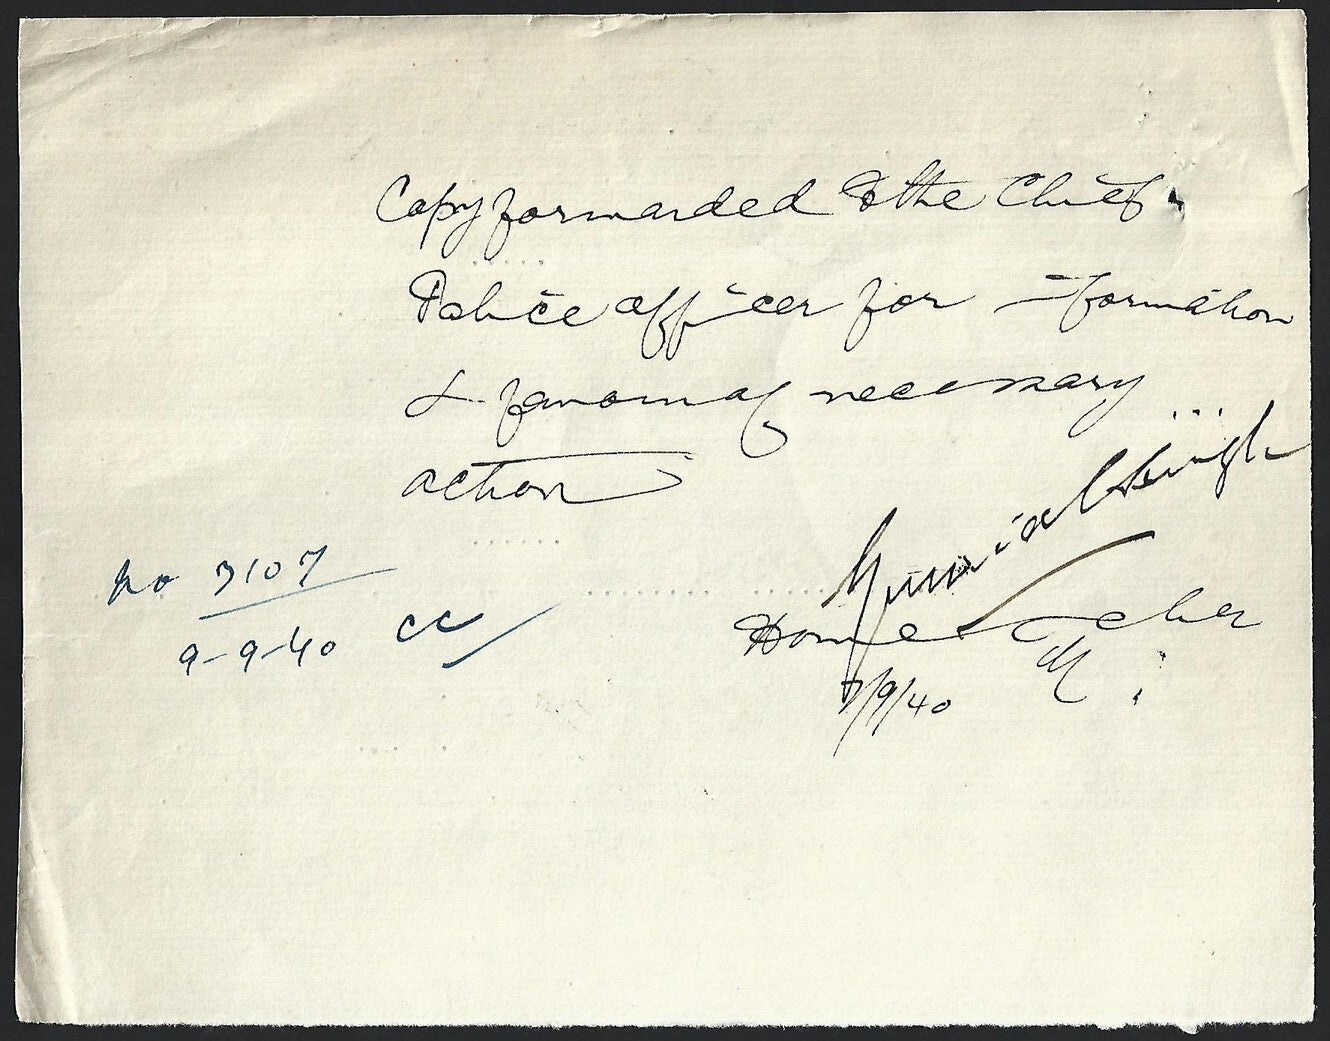 Copy forwarded to the Chief
Police officer for information
& favour of necessary
action
Singh
Home
7/9/40
No 3107
9-9-40 CC